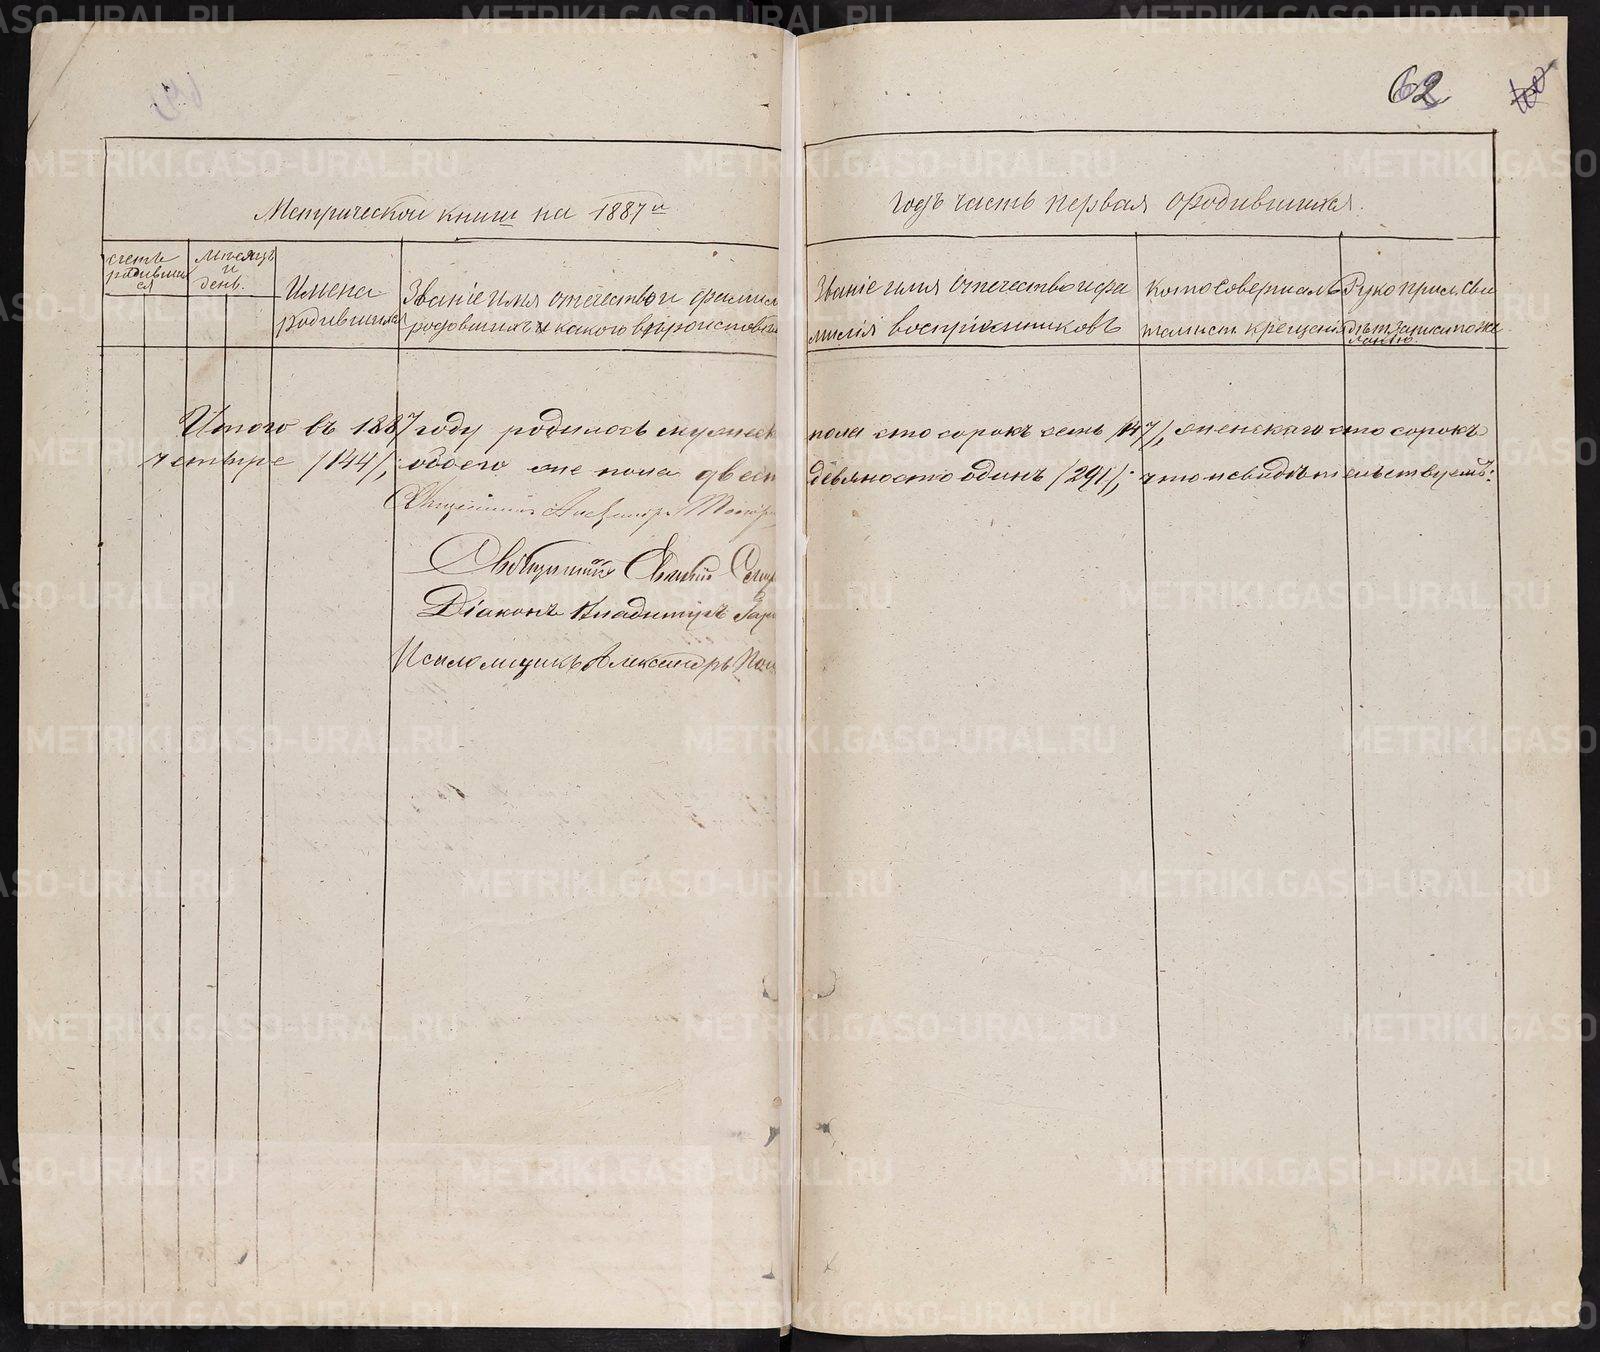 62
Метрической книги на 1887й годъ часть первая о родившихся.
счетъ родившихся
мѣсяцъ и день.
Имена родившихся
Званіе имя отечество и фамилія родившихъ и какого вѣроисповѣд
Званіе имя отечество и фамилія воспріемниковъ
Кто совершалъ таинст. крещенія
Рукоприк. свидѣт. записи по желанію.
Итого въ 1887 году родилось мужеск пола сто сорокъ семь /147/, женскаго сто сорокъ
четыре /144/; обоего же пола двѣст девяносто одинъ /291/; что и свидѣтельствуемъ:
Священникъ Александръ
Священникъ Евгеній
Діаконъ Владимиръ
Псаломщикъ Александръ
METRIKI.GASO-URAL.RU